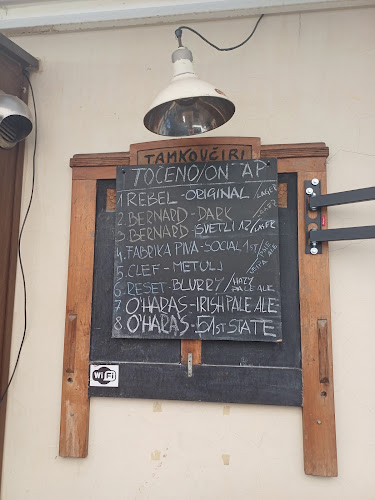 TAMKOVČIRI
TOČENO/ON TAP
1 REBEL - ORIGINAL /LAGER
2. BERNARD - DARK /LAGER
3 BERNARD SVETLI 12/LAGER
4. FABRIKA PIVA - SOCIAL 1st/ PALE ALE
5. CLEF - METULJ
6. RESET - BLURRY/HAZY PALE ALE
7 O'HARAS - IRISH PALE ALE
8 O'HARAS - 51st STATE
Wi Fi